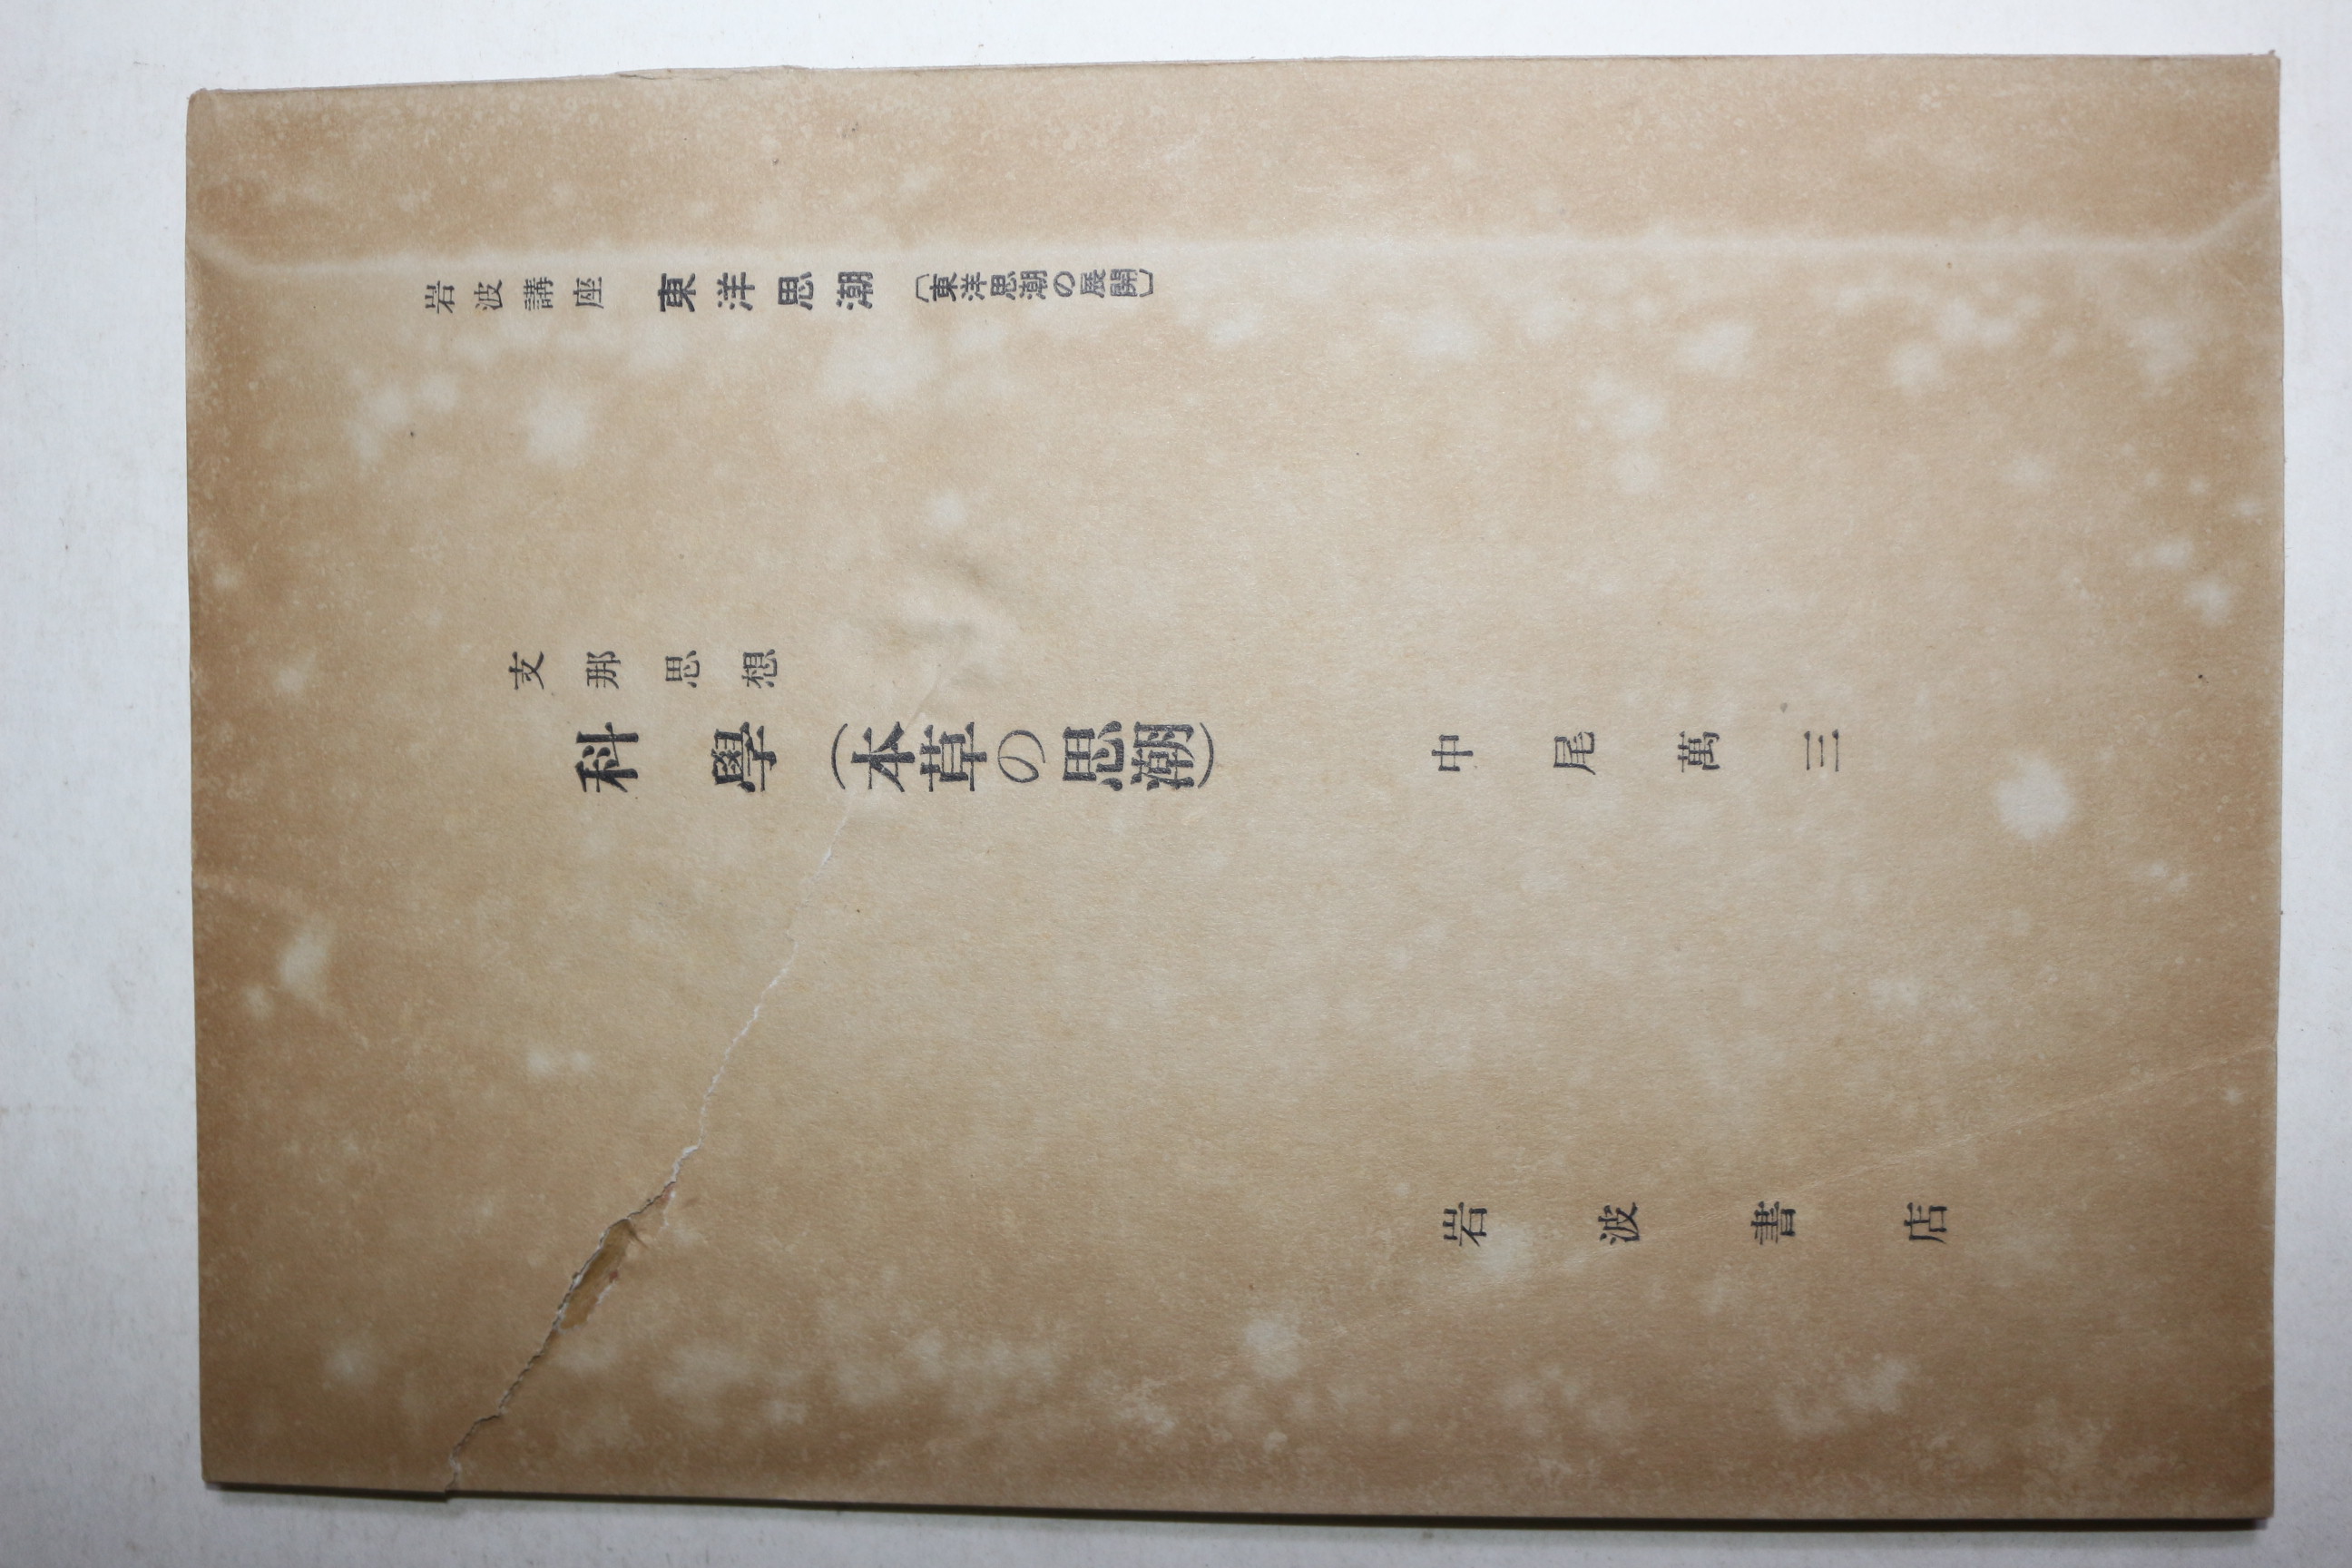 岩波講座 東洋思潮〔東洋思潮の展開〕
支那思想
科學(本草の思潮)
中尾萬三
岩波書店